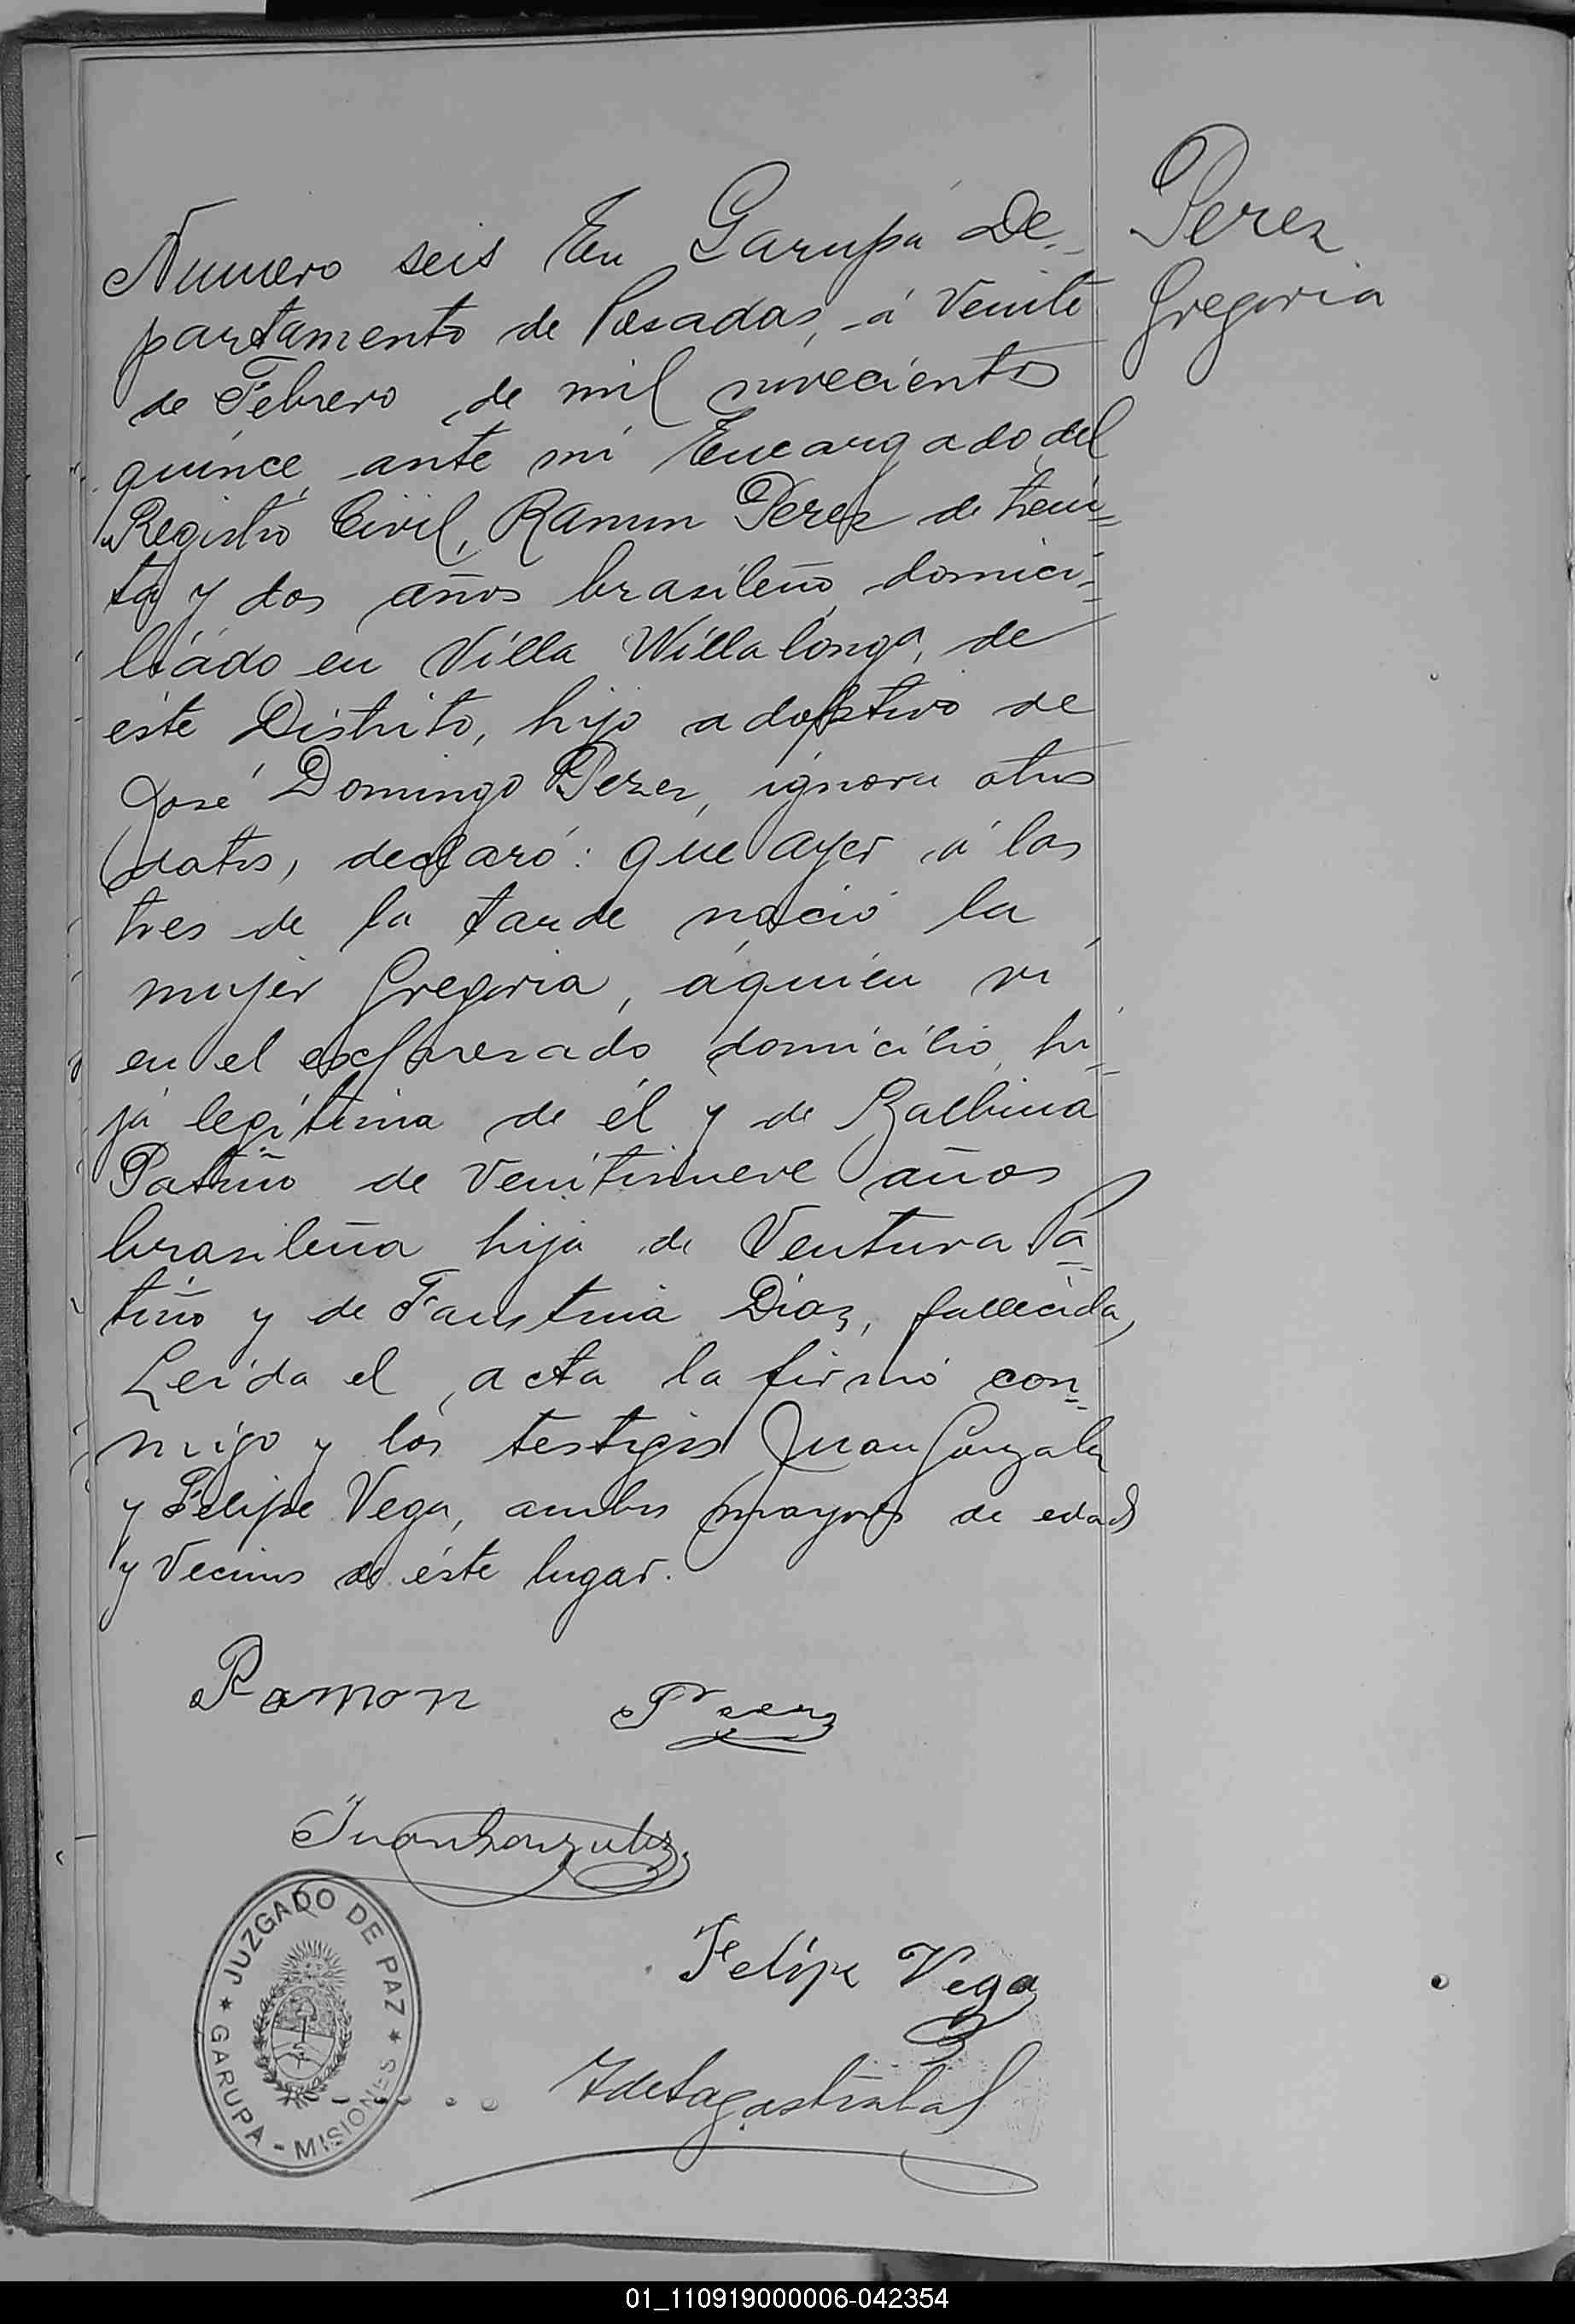 Perez
Gregoria
Numero seis En Garupá De-
partamento de Posadas, á Veinte
de Febrero de mil novecientos
quince, ante mi Encargado del
Registro Civil, Ramon Perez de trein=
ta y dos años brasileño, domici=
liado en Villa Willalonga, de
éste Distrito, hijo adoptivo de
José Domingo Perez, ignora otros
datos, declaró: que ayer á las
tres de la tarde nació la
mujer Gregoria, áquien vi
en el expresado domicilio, hi=
ja legítima de él y de Balbina
Patiño de Veintinueve años
brasileña hija de Ventura Pa=
tiño y de Faustina Diaz, fallecida,
Leida el acta la firmó con=
migo y los testigos Juan Gonzalez
y Felipe Vega, ambos mayores de edad
y Vecinos de éste lugar.
Ramon Perez
Juan Gonzalez
Felipe Vega
JUZGADO DE PAZ
GARUPA - MISIONES
01_110919000006-042354